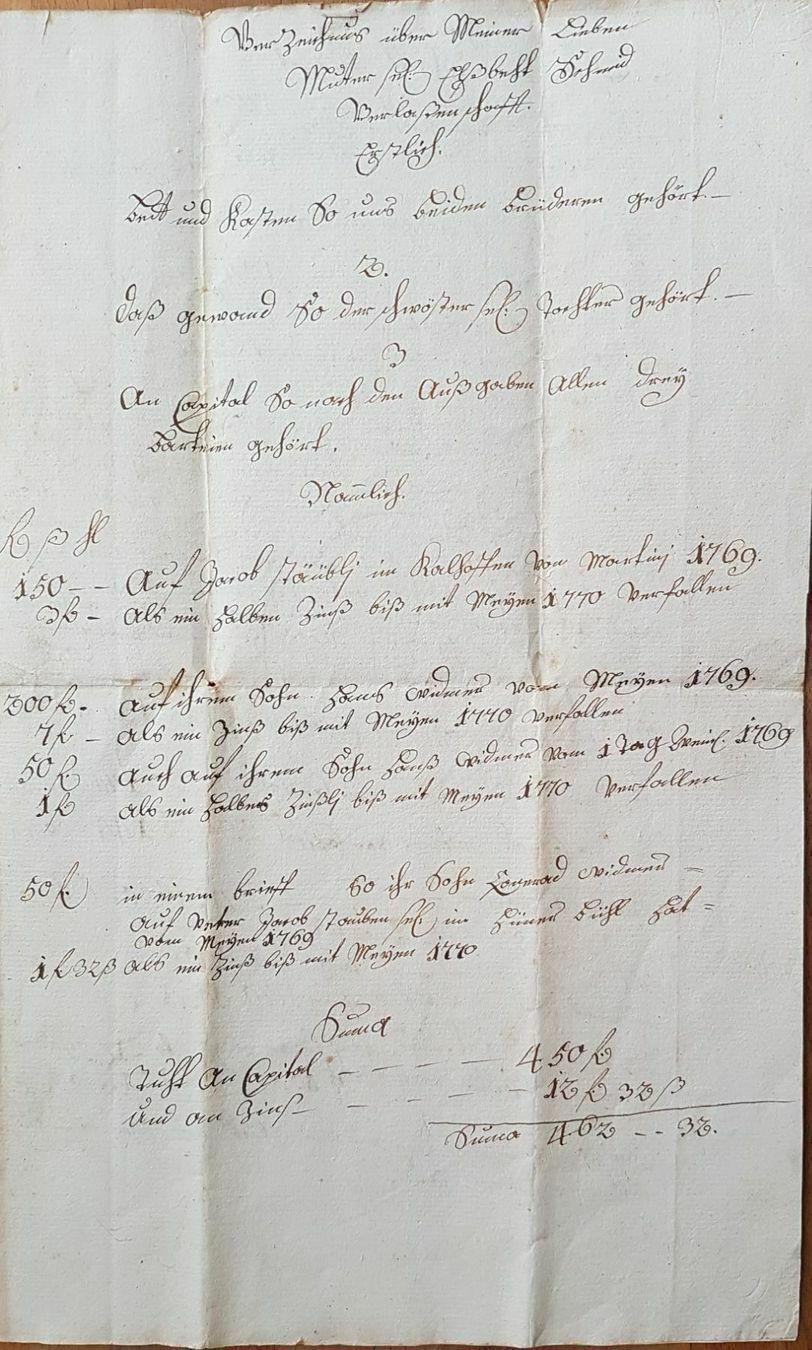 Verzeichnus über Meiner Lieben
Muter sel. Elßbeht Schmid
Verlaßenschafft.
Erstlich.
Bett und Kasten So uns beiden brüderen gehört. —
2.
daß gewand So der schwöster sel. Tochter gehört. —
3
An Capital So nach den Außgaben Allen drey
barteien gehört.
Namlich.
fl ß hl
150 – – Auf Jacob stäüblj im Kalhoffen von Martinj 1769.
3 fl – Als ein halben Zinß biß mit Meyen 1770 verfallen
200 fl – Auf ihrem Sohn hans widmer vom Meyen 1769.
7 fl – als ein Zinß biß mit Meyen 1770 verfallen
50 fl Auch auf ihrem Sohn hanß widmer vom 1 Tag 1769
1 fl als ein halbes Zinßlj biß mit Meyen 1770 verfallen
50 fl in einem brieff So ihr Sohn Conrad widmer –
Auf Veter Jacob stauben sel. im bühl hat =
vom Meyen 1769
1 fl 32 ß als ein Zinß biß mit Meyen 1770
Suma
Tuht An Capital — — — — 450 fl
und an Zins — — — — 12 fl 32 ß
Suma 462 – – 32.